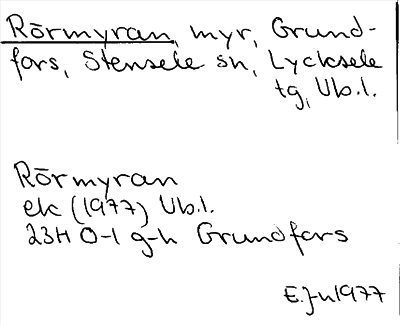 Rörmyran, myr, Grund-
fors, Stensele sn, Lycksele
tg, Vb.l.
Rörmyran
ek (1977) Vb.l.
23H 0-1 g-h Grundfors
E.Jn 1977